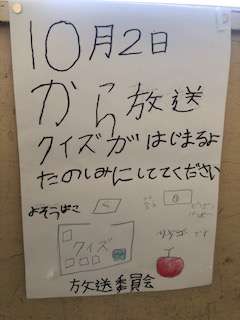 10月2日
から放送
クイズがはじまるよ
たのしみにしててください
よそうはこ
クイズ
放送委員会